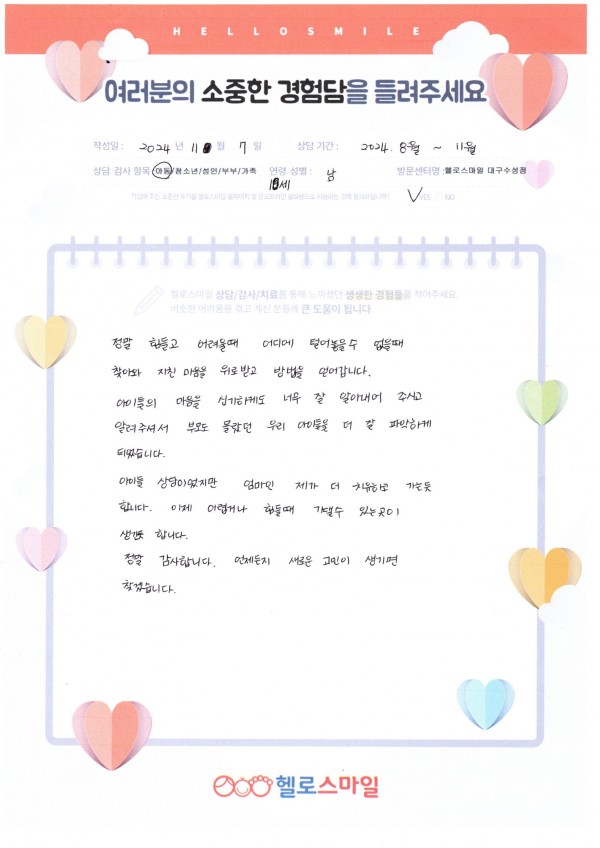 HELLOSMILE
여러분의 소중한 경험담을 들려주세요
작성일 : 2024 년 11 월 7 일 상담 기간 : 2024. 8월 ~ 11월
상담 검사 항목 : 아동/청소년/성인/부부/가족 연령 성별 : 남 방문센터명 : 헬로스마일 대구수성점
세
작성해 주신 소중한 후기를 헬로스마일 홈페이지 및 온·오프라인 홍보용으로 사용하는 것에 동의하십니까? YES NO
헬로스마일 상담/검사/치료를 통해 느끼셨던 생생한 경험들을 적어주세요.
비슷한 어려움을 겪고 계신 분들께 큰 도움이 됩니다.
정말 힘들고 어려울때 어디에 털어놓을수 없을때
찾아와 지친 마음을 위로받고 방법을 얻어갑니다.
아이들의 마음을 신기하게도 너무 잘 알아내어 주시고
알려주셔서 부모도 몰랐던 우리 아이들을 더 잘 파악하게
되었습니다.
아이들 상담이었지만 엄마인 제가 더 치유하고 가는듯
합니다. 이제 이렇거나 힘들때 기댈수 있는곳이
생긴듯 합니다.
정말 감사합니다. 언제든지 새로운 고민이 생기면
찾겠습니다.
헬로스마일